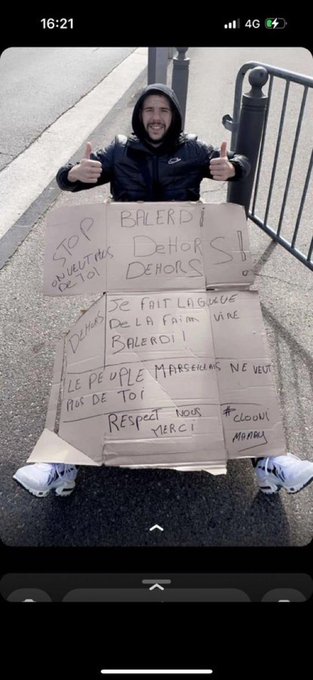 16:21
4G
STOP
ON VEUT PLUS
DE TOI
BALERDi
DeHORS!
DEHORS
DEHORS
Je FAIT LA GREVE
De LA FAIM VIRE
BALERDI!
LE PEUPLE MARSEILLAIS NE VEUT
PLUS DE TOI
Respect NOUS
MERCI
#CLOONI